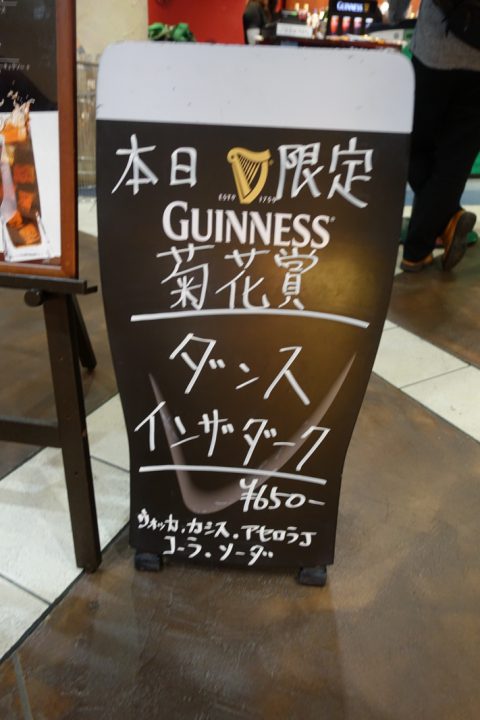 GUINNESS
本日 限定
ESTD 1759
GUINNESS
菊花賞
ダンス
インザダーク
¥650-
ウォッカ.カシス.アセロラJ
コーラ.ソーダ